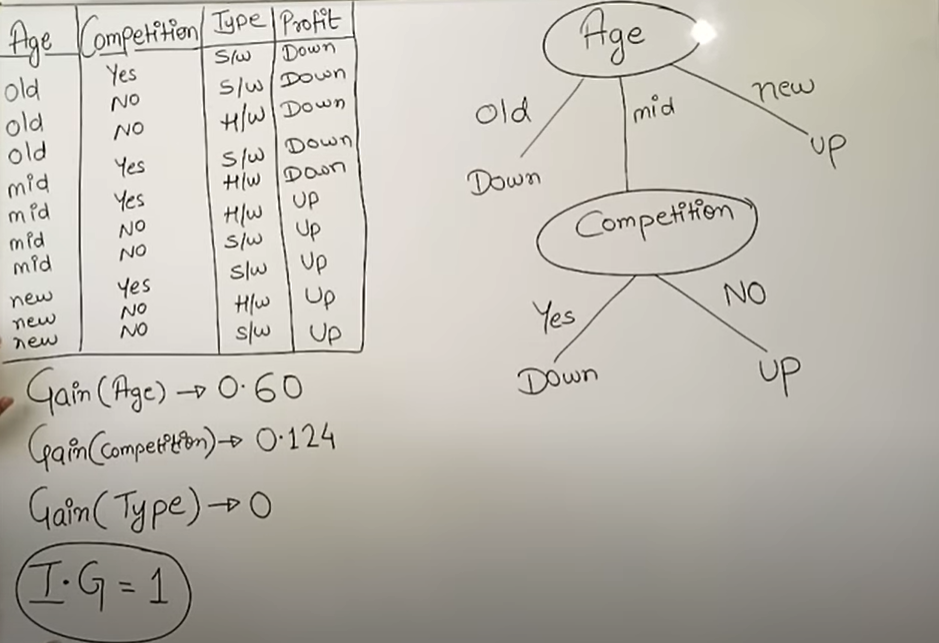 Age Competition Type Profit
old Yes S/W Down
old NO S/W Down
old NO H/W Down
mid Yes S/W Down
mid Yes H/W Down
mid NO H/W UP
mid NO S/W Up
new Yes S/W Up
new NO H/W Up
new NO S/W Up
Gain(Age) → 0.60
Gain(Competition) → 0.124
Gain(Type) → 0
I.G = 1
Age
Old mid new
Down UP
Competition
Yes NO
Down UP